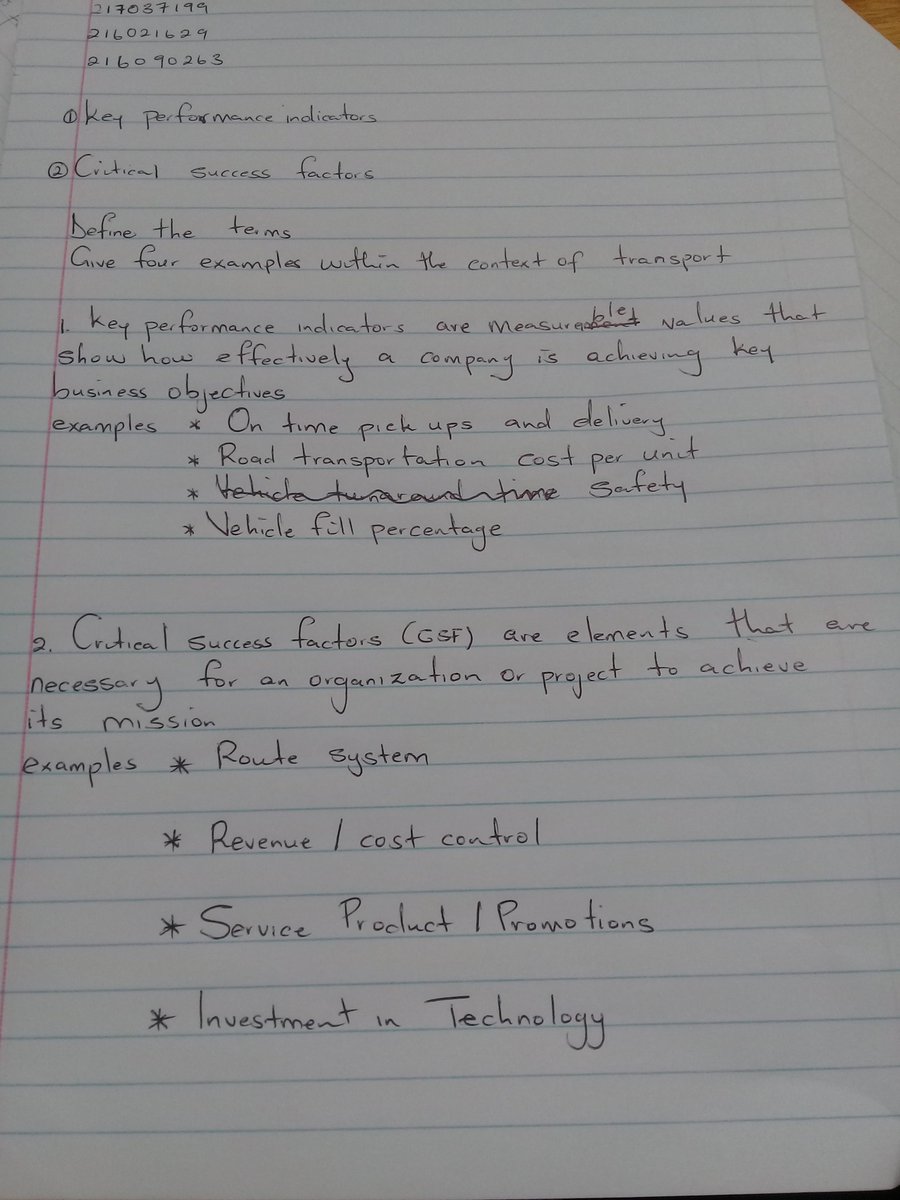 217037199
216021629
216090263
① Key performance indicators
② Critical success factors
Define the terms
Give four examples within the context of transport
1. Key performance indicators are measurable values that
show how effectively a company is achieving key
business objectives
examples * On time pick ups and delivery
* Road transportation cost per unit
* Vehicle turnaround time safety
* Vehicle fill percentage
2. Critical success factors (CSF) are elements that are
necessary for an organization or project to achieve
its mission
examples * Route system
* Revenue / cost control
* Service Product / Promotions
* Investment in Technology